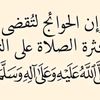 إن الحوائج لتُقضى
ثرة الصلاة على
اللَّهُ عَلَيْهِ وَعَلَىٰ آلِهِ وَسَلَّمَ